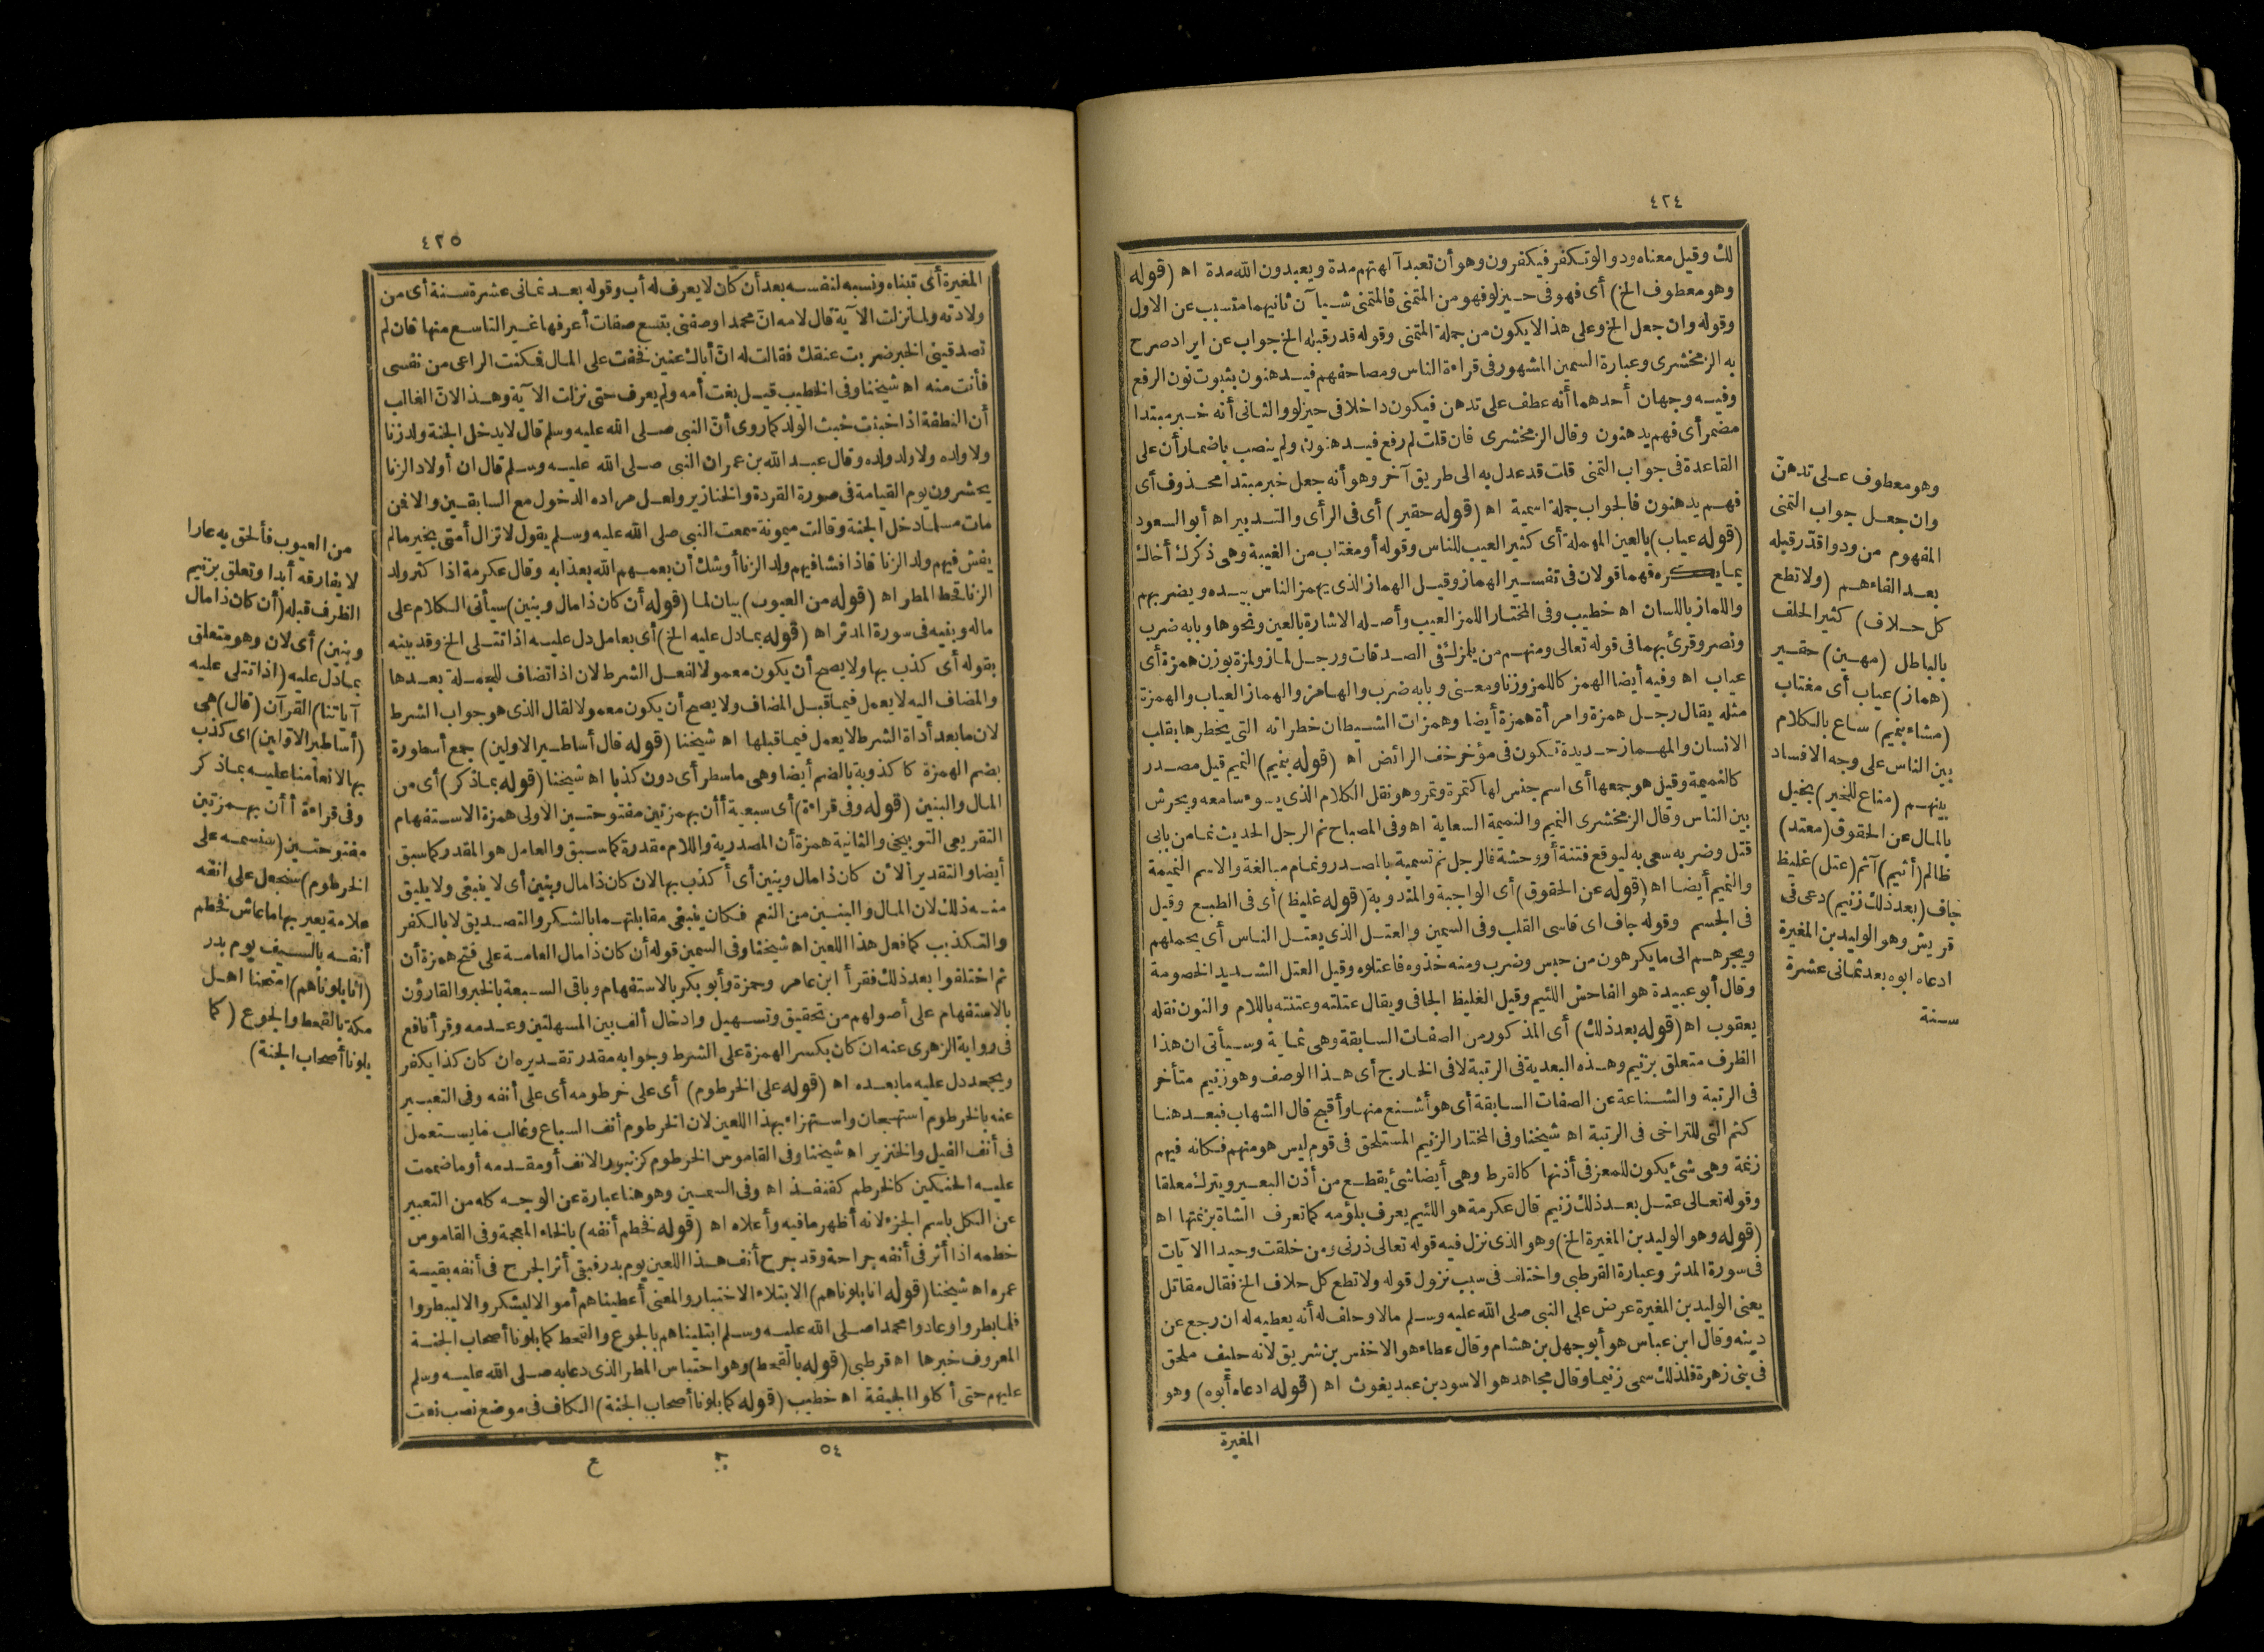 ٤٢٤
لك وقيل معناه ودوا لو تكفر فيكفرون وهو أن تعبد آلهتهم مدة ويعبدون الله مدة اه (قوله
وهو معطوف الخ) أى فهو فى حيز لو فهو من المتمنى فالمتمنى شيآن ثانيهما متسبب عن الاول
وقوله وان جعل الخ وعلى هذا لا يكون من جملة المتمنى وقوله قدر قبله الخ جواب عن ايراد صرح
به الزمخشرى وعبارة السمين المشهور فى قراءة الناس ومصاحفهم فيدهنون بثبوت نون الرفع
وفيه وجهان أحدهما أنه عطف على تدهن فيكون داخلا فى حيز لو والثانى أنه خبر مبتدا
مضمر أى فهم يدهنون وقال الزمخشرى فان قلت لم رفع فيدهنون ولم ينصب باضمار أن على
القاعدة فى جواب التمنى قلت قد عدل به الى طريق آخر وهو أنه جعل خبر مبتدا محذوف أى
فهم يدهنون فالجواب جملة اسمية اه (قوله حقير) أى فى الرأى والتدبير اه أبو السعود
(قوله عياب) بالعين المهملة أى كثير العيب للناس وقوله أو مغتاب من الغيبة وهى ذكرك أخاك
بما يكره فهما قولان فى تفسير الهماز وقيل الهماز الذى يهمز الناس بيده ويضربهم
واللماز باللسان اه خطيب وفى المختار اللمز العيب وأصله الاشارة بالعين ونحوها وبابه ضرب
ونصر وقرئ بهما فى قوله تعالى ومنهم من يلمزك فى الصدقات ورجل لماز ولمزة بوزن همزة أى
عياب اه وفيه أيضا الهمز كاللمز وزنا ومعنى وبابه ضرب والهامز والهماز العياب والهمزة
مثله يقال رجل همزة وامرأة همزة أيضا وهمزات الشيطان خطراته التى يخطرها بقلب
الانسان والمهماز حديدة تكون فى مؤخر خف الرائض اه (قوله بنميم) النميم قيل مصدر
كالنميمة وقيل هو جمعها أى اسم جنس لها كتمرة وتمر وهو نقل الكلام الذى يسوء سامعه ويحرش
بين الناس وقال الزمخشرى النميم والنميمة السعاية اه وفى المصباح نم الرجل الحديث نما من بابى
قتل وضرب به سعى به ليوقع فتنة أو وحشة فالرجل نم تسمية بالمصدر ونمام مبالغة والاسم النميمة
والنميم أيضا اه (قوله عن الحقوق) أى الواجبة والمندوبة (قوله غليظ) أى فى الطبع وقيل
فى الجسم وقوله جاف اى قاسى القلب وفى السمين والعتل الذى يعتل الناس أى يحملهم
ويجرهم الى ما يكرهون من حبس وضرب ومنه خذوه فاعتلوه وقيل العتل الشديد الخصومة
وقال أبو عبيدة هو الفاحش اللئيم وقيل الغليظ الجافى ويقال عتلته وعتنته باللام والنون نقله
يعقوب اه (قوله بعد ذلك) أى المذكور من الصفات السابقة وهى ثمانية وسيأتى ان هذا
الظرف متعلق بزنيم وهذه البعدية فى الرتبة لا فى الخارج أى هذا الوصف وهو زنيم متأخر
فى الرتبة والشناعة عن الصفات السابقة أى هو أشنع منها وأقبح قال الشهاب فبعد هنا
كثم التى للتراخى فى الرتبة اه شيخنا وفى المختار الزنيم المستلحق فى قوم ليس هو منهم فكانه فيهم
زنمة وهى شئ يكون للمعز فى أذنها كالقرط وهى أيضا شئ يقطع من أذن البعير ويترك معلقا
وقوله تعالى عتل بعد ذلك زنيم قال عكرمة هو اللئيم يعرف بلؤمه كما تعرف الشاة بزنمتها اه
(قوله وهو الوليد بن المغيرة الخ) وهو الذى نزل فيه قوله تعالى ذرنى ومن خلقت وحيدا الآيات
فى سورة المدثر وعبارة القرطبى واختلف فى سبب نزول قوله ولا تطع كل حلاف الخ فقال مقاتل
يعنى الوليد بن المغيرة عرض على النبى صلى الله عليه وسلم مالا وحلف له أنه يعطيه له ان رجع عن
دينه وقال ابن عباس هو أبو جهل بن هشام وقال عطاء هو الاخنس بن شريق لانه حليف ملحق
فى بنى زهرة فلذلك سمى زنيما وقال مجاهد هو الاسود بن عبد يغوث اه (قوله ادعاه أبوه) وهو
المغيرة
وهو معطوف على تدهن
وان جعل جواب التمنى
المفهوم من ودوا قدر قبله
بعد الفاءهم (ولا تطع
كل حلاف) كثير الحلف
بالباطل (مهين) حقير
(هماز) عياب أى مغتاب
(مشاء بنميم) ساع بالكلام
بين الناس على وجه الافساد
بينهم (مناع للخير) بخيل
بالمال عن الحقوق (معتد)
ظالم (أثيم) آثم (عتل) غليظ
جاف (بعد ذلك زنيم) دعى فى
قريش وهو الوليد بن المغيرة
ادعاه ابوه بعد ثمانى عشرة
سنة
٤٢٥
المغيرة أى تبناه ونسبه لنفسه بعد أن كان لا يعرف له أب وقوله بعد ثمانى عشرة سنة أى من
ولادته ولما نزلت الآية قال لامه ان محمدا وصفنى بتسع صفات أعرفها غير التاسع منها فان لم
تصدقينى الخبر ضربت عنقك فقالت له ان أباك عنين فخفت على المال فمكنت الراعى من نفسى
فأنت منه اه شيخنا وفى الخطيب قيل بغت أمه ولم يعرف حتى نزلت الآية وهذا لان الغالب
أن النطفة اذا خبثت خبث الولد كما روى أن النبى صلى الله عليه وسلم قال لا يدخل الجنة ولد زنا
ولا ولده ولا ولد ولده وقال عبد الله بن عمر ان النبى صلى الله عليه وسلم قال ان أولاد الزنا
يحشرون يوم القيامة فى صورة القردة والخنازير ولعل مراده الدخول مع السابقين والا فمن
مات مسلما دخل الجنة وقالت ميمونة سمعت النبى صلى الله عليه وسلم يقول لا تزال أمتى بخير مالم
يفش فيهم ولد الزنا فاذا فشا فيهم ولد الزنا أوشك أن يعمهم الله بعذابه وقال عكرمة اذا كثر ولد
الزنا قحط المطر اه (قوله من العيوب) بيان لما (قوله أن كان ذا مال وبنين) سيأتى الكلام على
ماله وبنيه فى سورة المدثر اه (قوله بما دل عليه الخ) أى بعامل دل عليه اذا تتلى الخ وقد بينه
بقوله أى كذب بها ولا يصح أن يكون معمولا لفعل الشرط لان اذا تضاف للجملة بعدها
والمضاف اليه لا يعمل فيما قبل المضاف ولا يصح أن يكون معمولا لقال الذى هو جواب الشرط
لان ما بعد أداة الشرط لا يعمل فيما قبلها اه شيخنا (قوله قال أساطير الاولين) جمع أسطورة
بضم الهمزة كاكذوبة بالضم أيضا وهى ما سطر أى دون كذبا اه شيخنا (قوله بما ذكر) أى من
المال والبنين (قوله وفى قراءة) أى سبعية أأن بهمزتين مفتوحتين الاولى همزة الاستفهام
التقريعى التوبيخى والثانية همزة أن المصدرية واللام مقدرة كما سبق والعامل هو المقدر كما سبق
أيضا والتقدير ألأن كان ذا مال وبنين أى أكذب بها لان كان ذا مال وبنين أى لا ينبغى ولا يليق
منه ذلك لان المال والبنين من النعم فكان ينبغى مقابلتهما بالشكر والتصديق لا بالكفر
والتكذيب كما فعل هذا اللعين اه شيخنا وفى السمين قوله أن كان ذا مال العامة على فتح همزة أن
ثم اختلفوا بعد ذلك فقرأ ابن عامر وحمزة وأبو بكر بالاستفهام وباقى السبعة بالخبر والقارؤن
بالاستفهام على أصولهم من تحقيق وتسهيل وادخال ألف بين المسهلتين وعدمه وقرأ نافع
فى رواية الزهرى عنه ان كان بكسر الهمزة على الشرط وجوابه مقدر تقديره ان كان كذا يكفر
ويجحد دل عليه ما بعده اه (قوله على الخرطوم) أى على خرطومه أى على أنفه وفى التعبير
عنه بالخرطوم استهجان واستهزاء بهذا اللعين لان الخرطوم أنف السباع وغالب ما يستعمل
فى أنف الفيل والخنزير اه شيخنا وفى القاموس الخرطوم كزنبور الانف أو مقدمه أو ما ضممت
عليه الحنكين كالخرطم كقنفذ اه وفى السمين وهو هنا عبارة عن الوجه كله من التعبير
عن الكل باسم الجزء لانه أظهر ما فيه وأعلاه اه (قوله فخطم أنفه) بالخاء المعجمة وفى القاموس
خطمه اذا أثر فى أنفه جراحة وقد جرح أنف هذا اللعين يوم بدر فبقى أثر الجرح فى أنفه بقية
عمره اه شيخنا (قوله انا بلوناهم) الابتلاء الاختبار والمعنى أعطيناهم أموالا ليشكروا لا ليبطروا
فلما بطروا وعادوا محمدا صلى الله عليه وسلم ابتليناهم بالجوع والقحط كما بلونا أصحاب الجنة
المعروف خبرها اه قرطبى (قوله بالقحط) وهو احتباس المطر الذى دعا به صلى الله عليه وسلم
عليهم حتى أكلوا الجيفة اه خطيب (قوله كما بلونا أصحاب الجنة) الكاف فى موضع نصب نعت
٥٤
ع
من العيوب فألحق به عارا
لا يفارقه أبدا وتعلق بزنيم
الظرف قبله (أن كان ذا مال
وبنين) أى لان وهو متعلق
بما دل عليه (اذا تتلى عليه
آياتنا) القرآن (قال) هى
(أساطير الاولين) اى كذب
بها لانعامنا عليه بما ذكر
وفى قراءة أأن بهمزتين
مفتوحتين (سنسمه على
الخرطوم) سنجعل على انفه
علامة يعير بها ما عاش فخطم
أنفه بالسيف يوم بدر
(انا بلوناهم) امتحنا اهل
مكة بالقحط والجوع (كما
بلونا أصحاب الجنة)